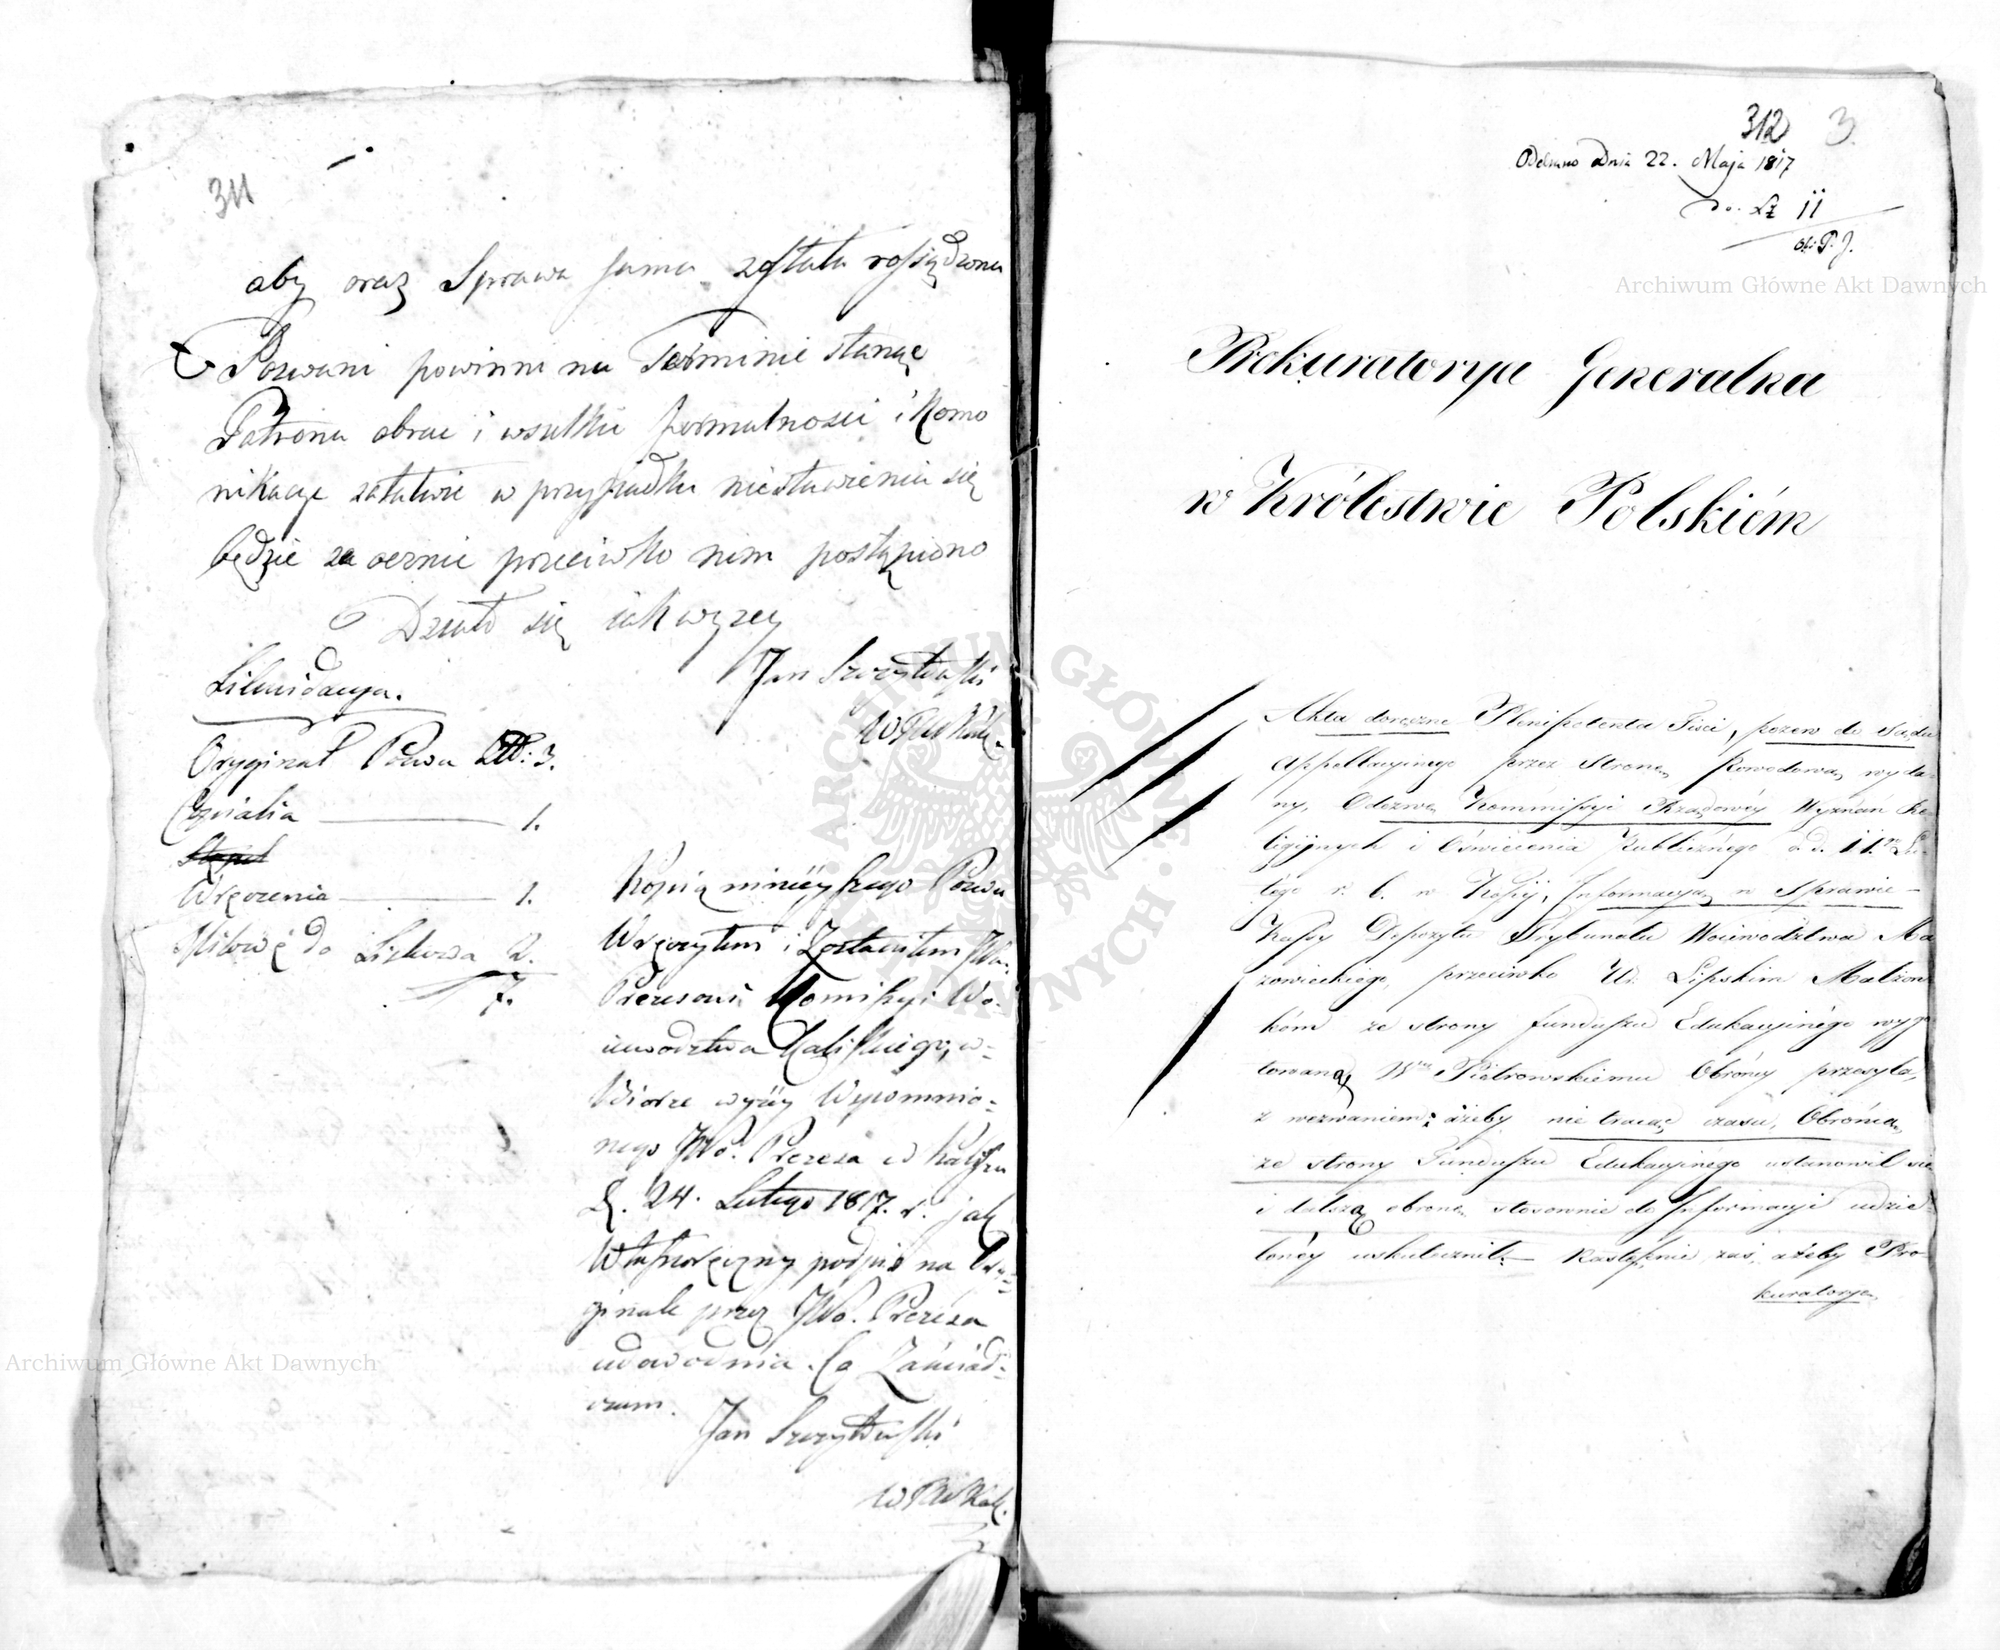 311
aby oraz Sprawa sama została rosządzona
Pozwani powinni na Terminie stanąć
Patrona obrać i wszelkie formalności i Komo
nikacje załatwić w przypadku niestawienia się
będzie zaocznie przeciwko nim postąpiono
Działo się iak wyżey
Jan
Likwidacya.
Oryginał Pozwu 3.
Copialia 1.
Wręczenia 1.
do 2.
7.
Kopią ninieyszego Pozwu
Wręczyłem i Zostawiłem JWu
Prezesowi Komissyi Wo-
iewództwa Kaliskiego, w-
Biórze wyżey Wspomnio-
nego JWo. Prezesa w Kaliszu
d. 24. Lutego 1817. r. jak
Własnoręczny podpis na Ory-
ginale przez JWo. Prezesa
udowodnia. Co Zaświad-
czam.
Jan
312 3.
Odebrano Dnia 22. Maja 1817
do. 11
Ob: P. J.
Archiwum Główne Akt Dawnych
Prokuratorya Generalna
w Królestwie Polskiém
Akta doręczne Plenipotenta Fisci, pozew do Sądu
Appellacyinego przez Stronę Powodową wyda-
ny, Odezwę Kommissyi Rządowéy Wyznań Re-
ligijnych i Oświecenia Publicznego d. d. 11. Lu-
tego r. b. w Kopij, Informacyą w Sprawie
Kassy Depozytu Trybunału Woiewództwa Ma
zowieckiego, przeciwko Ur. Lipskim Małżon
kóm ze strony funduszu Edukacyinégo wygo
towaną Wmu Piotrowskiemu Obrońcy przesyła,
z wezwaniem: ażeby nie tracąc czasu, Obrońcą
ze strony Funduszu Edukacyinego ustanowił się
i dalszą obronę stosownie do Informacyi udzie-
lonéy uskutecznił. Następnie zaś, ażeby Pro-
kuratoryą
Archiwum Główne Akt Dawnych
ARCHIWUM GŁÓWNE AKT DAWNYCH